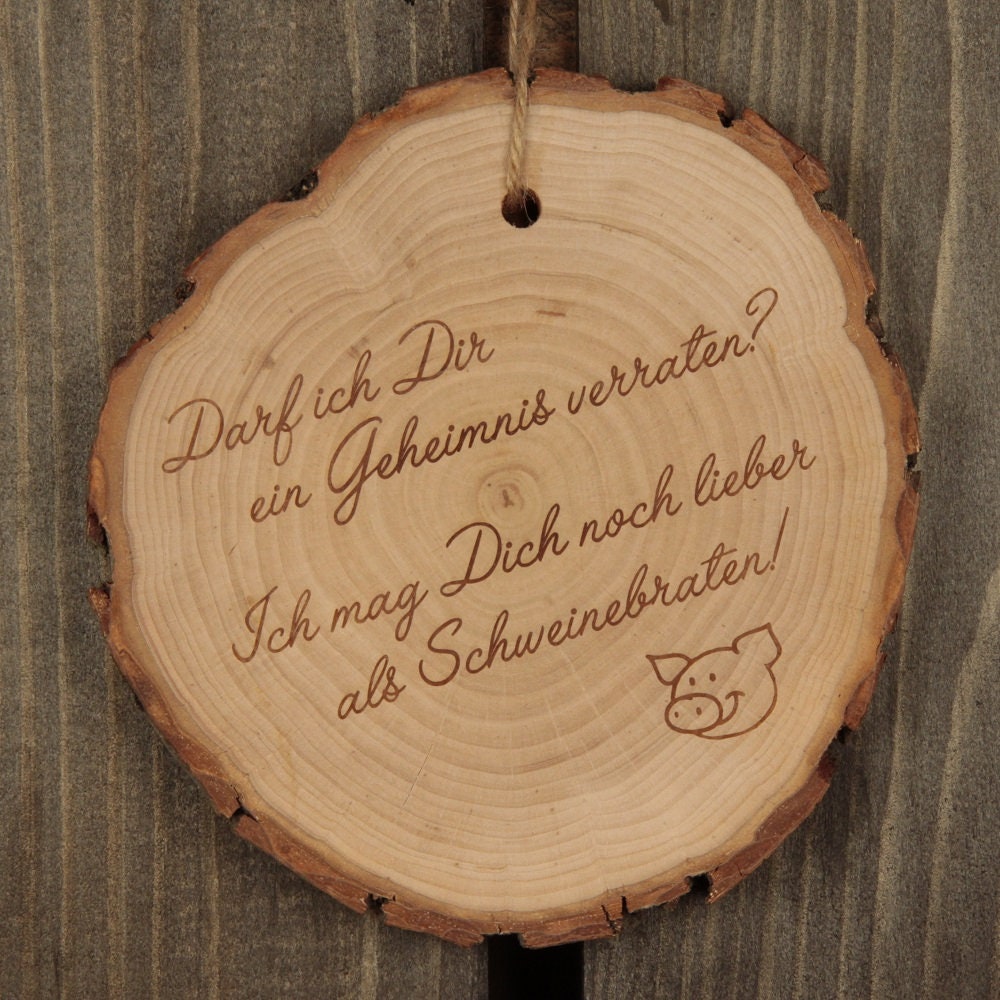 Darf ich Dir
ein Geheimnis verraten?
Ich mag Dich noch lieber
als Schweinebraten!